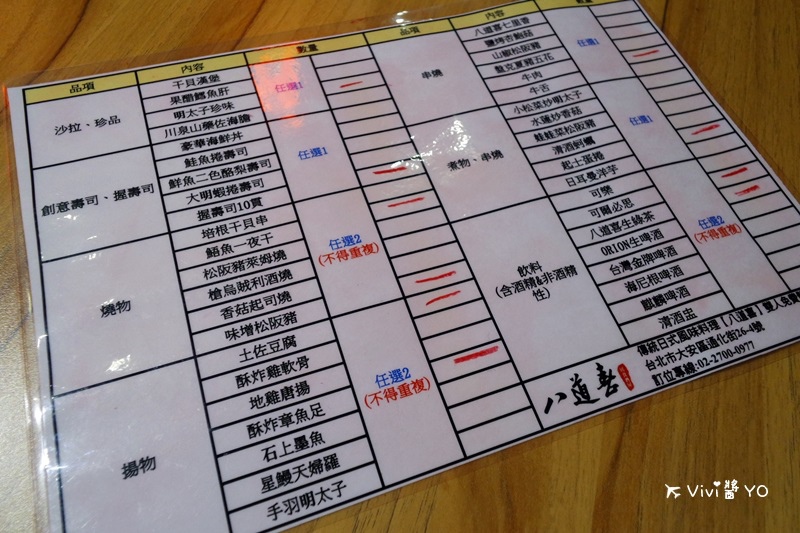 品項 內容 數量
沙拉、珍品
干貝漢堡
果醋鱈魚肝
明太子珍味
川泉山藥佐海膽
豪華海鮮丼
任選1
創意壽司、握壽司
鮭魚捲壽司
鮮魚二色酪梨壽司
大明蝦捲壽司
握壽司10貫
任選1
燒物
培根干貝串
鯃魚一夜干
松阪豬萊姆燒
槍烏賊利酒燒
香菇起司燒
味增松阪豬
任選2
(不得重複)
揚物
土佐豆腐
酥炸雞軟骨
地雞唐揚
酥炸章魚足
石上墨魚
星鰻天婦羅
手羽明太子
任選2
(不得重複)
品項 內容 數量
串燒
八道喜七里香
鹽烤杏鮑菇
山椒松阪豬
盤克夏豬五花
牛肉
牛舌
任選1
煮物、串燒
小松菜炒明太子
水蓮炒香菇
娃娃菜松阪豬
清酒蚵蠣
起士蛋捲
日耳曼洋芋
任選1
飲料
(含酒精&非酒精性)
可樂
可爾必思
八道喜生綠茶
ORION生啤酒
台灣金牌啤酒
海尼根啤酒
麒麟啤酒
清酒盅
任選2
(不得重複)
八道喜
傳統日式風味料理【八道喜】雙人免費
台北市大安區通化街26-4號
訂位專線:02-2700-0977
Vivi醬 YO